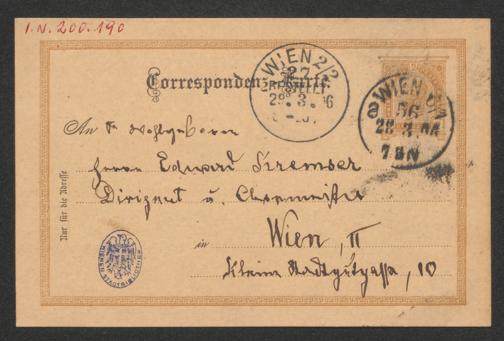 I.N. 200.190
Correspondenz-Karte.
WIEN 2/2
27
BESTELLT
29. 3. 96
WIEN
56
28 3 96
7 8 N
An Sr Wohlgeboren
Herrn Eduard Kremser
Dirigent u. Chormeister
in Wien, II
Kleine Stadtgutgasse, 10
Nur für die Adresse
WIENER STADTBIBLIOTHEK